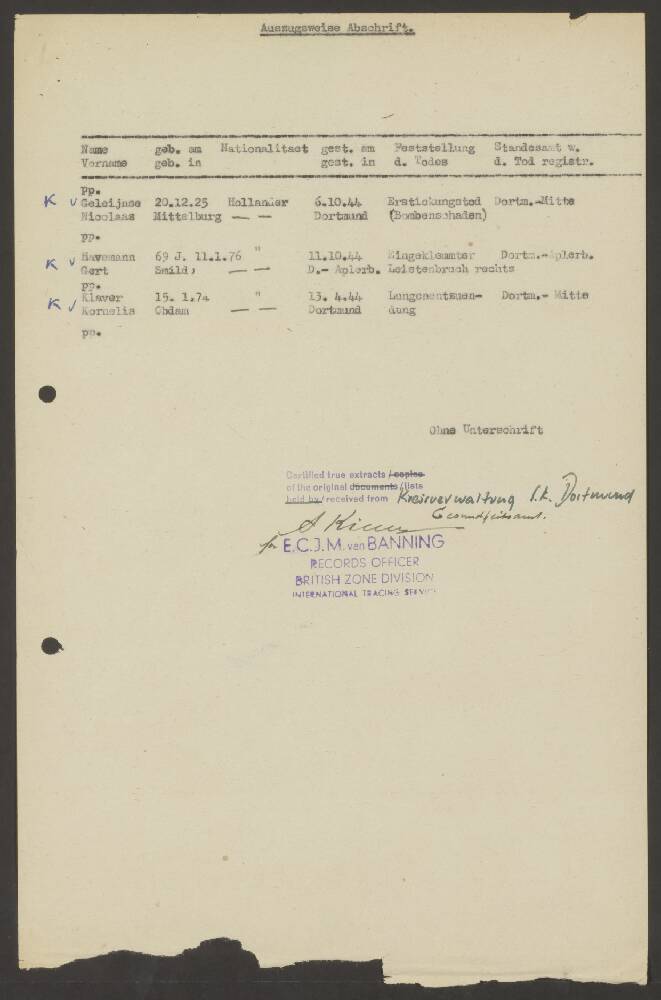 Auszugsweise Abschrift.
Name geb. am Nationalitaet gest. am Feststellung Standesamt w.
Vorname geb. in gest. in d. Todes d. Tod registr.
pp.
K v Geleijnse 20.12.25 Hollander 6.10.44 Erstickungstod Dortm.-Mitte
Nicolaas Mittelburg — — Dortmund (Bombenschaden)
pp.
K v Havemann 69 J. 11.1.76 " 11.10.44 Eingeklemmter Dortm.-Aplerb.
Gert Smild, — — D.- Aplerb. Leistenbruch rechts
pp.
K v Klaver 15. 1.74 " 13. 4.44 Lungenentzuen- Dortm.- Mitte
Kornelis Obdam — — Dortmund dung
pp.
Ohne Unterschrift
Certified true extracts / copies
of the original documents / lists
held by / received from Kreisverwaltung S.K. Dortmund
Gesundheitsamt.
for E.C.J.M. van BANNING
RECORDS OFFICER
BRITISH ZONE DIVISION
INTERNATIONAL TRACING SERVICE